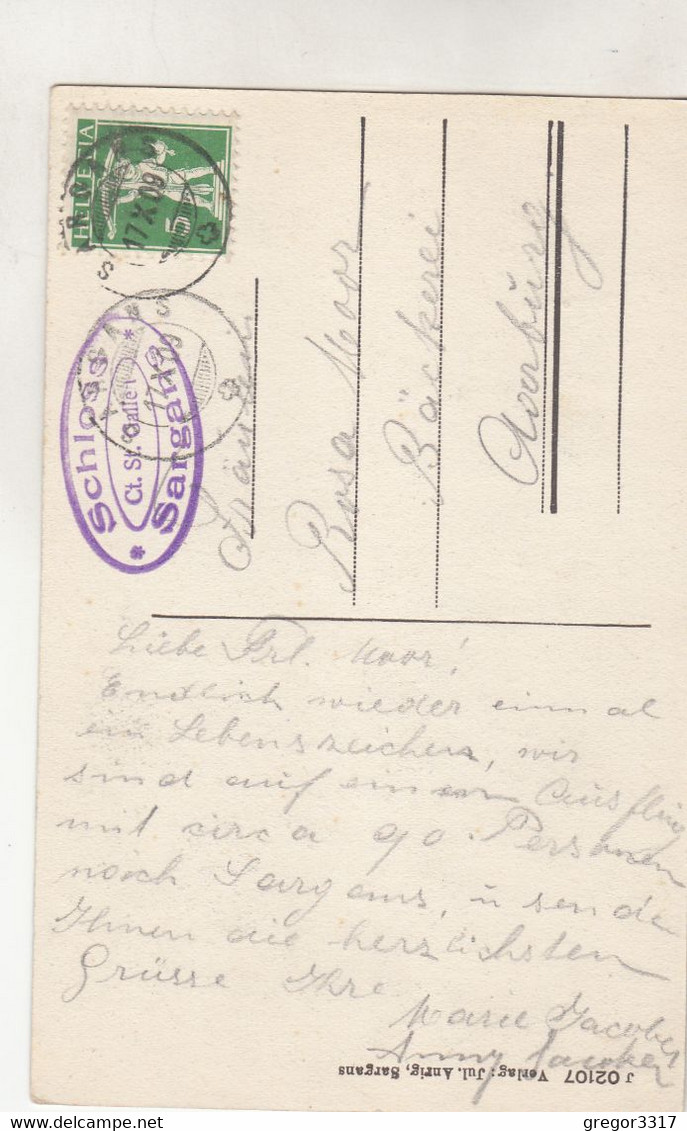 HELVETIA
5
SARGANS
17.X.09
SARGANS
17.X.09
Schloss
Ct. St. Gallen
* Sargans *
Fräulein
Rosa Moor
Bäckerei
Aarburg
Liebe Frl. Moor!
Endlich wieder einmal
ein Lebenszeichen, wir
sind auf einem Ausflug
mit circa 90 Personen
nach Sargans, u senden
Ihnen die herzlichsten
Grüsse Ihre
Marie Jacober
Anny
J 02107 Verlag: Jul. Anrig, Sargans
gregor3317